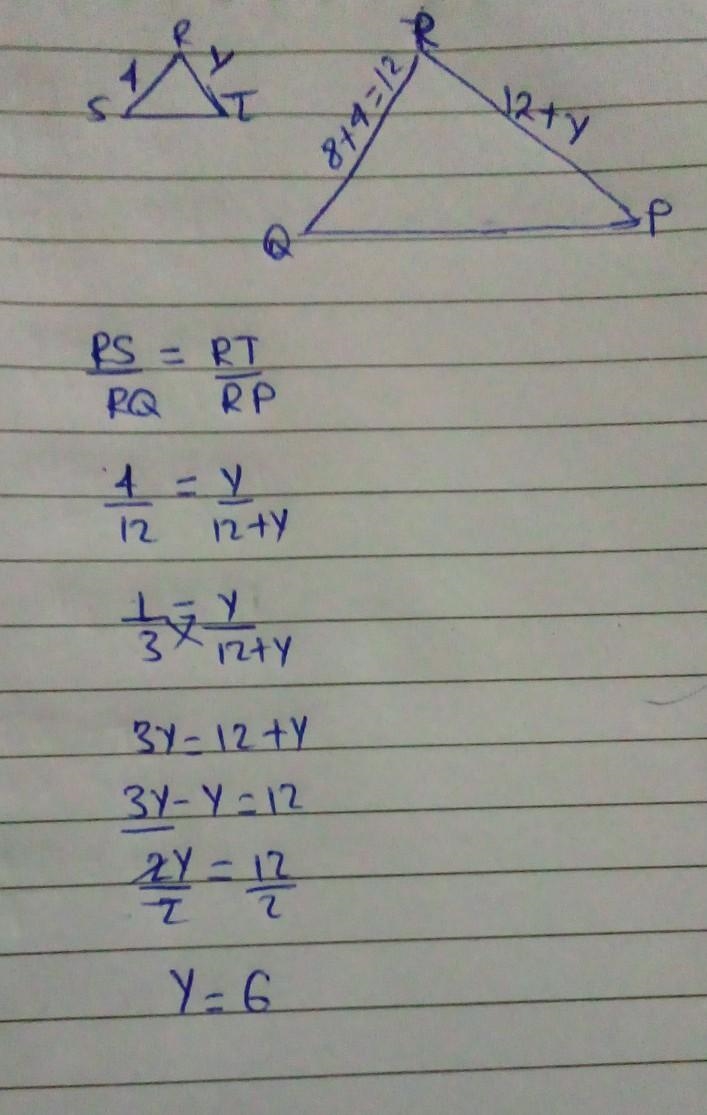 R
4 Y
S T
R
8+4=12
12+Y
Q P
RS/RQ = RT/RP
4/12 = Y/12+Y
1/3 = Y/12+Y
3Y=12+Y
3Y-Y=12
2Y/2 = 12/2
Y=6